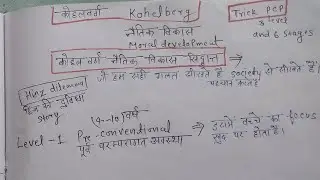 कोहलबर्ग Kohelberg
Trick PCP
3 level
and 6 stages
नैतिक विकास
Moral development
कोहलबर्ग नैतिक विकास सिद्धान्त
जो हम सही गलत सीखते है society से सीखते हैं।
Hinz dilemma
हिंज की दुविधा
story
(4-10) वर्ष
Level-1 Pre-conventional
पूर्व परम्परागत अवस्था
इसमें बच्चे का focus
खुद पर होता है।